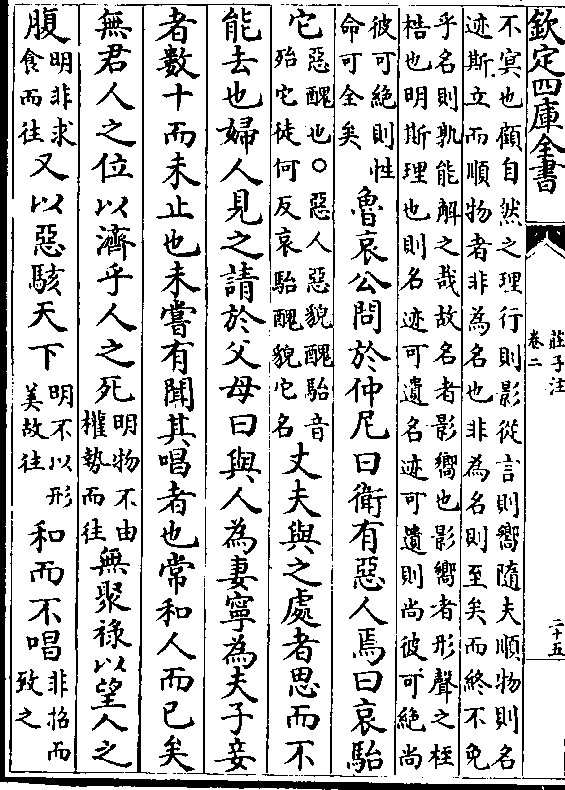 欽定四庫全書
莊子注
卷二
二十五
不冥也顧自然之理行則影從言則嚮隨夫順物則名
迹斯立而順物者非為名也非為名則至矣而終不免
乎名則孰能解之哉故名者影嚮也影嚮者形聲之桎
梏也明斯理也則名迹可遺名迹可遺則尚彼可絶尚
彼可絶則性
命可全矣
魯哀公問於仲尼曰衛有惡人焉曰哀駘
它
惡醜也○惡人惡貌醜駘音
殆它徒何反哀駘醜貌它名
丈夫與之處者思而不
能去也婦人見之請於父母曰與人為妻寧為夫子妾
者數十而未止也未嘗有聞其唱者也常和人而已矣
無君人之位以濟乎人之死
明物不由
權勢而往
無聚祿以望人之
腹
明非求
食而往
又以惡駭天下
明不以形
美故往
和而不唱
非招而
致之